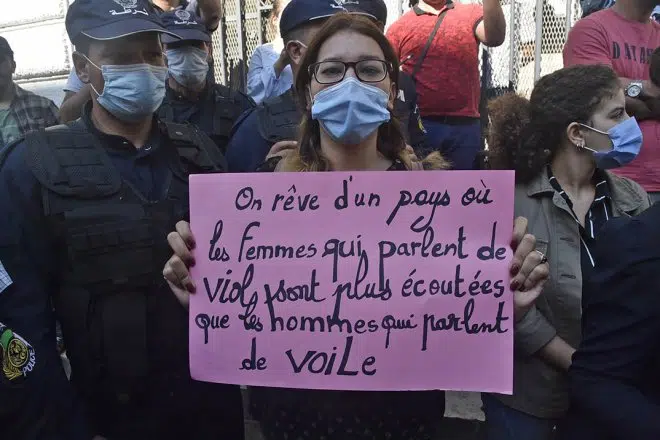 On rêve d'un pays où
les femmes qui parlent de
viol, sont plus écoutées
que les hommes qui parlent
de VOILe
DALLAS